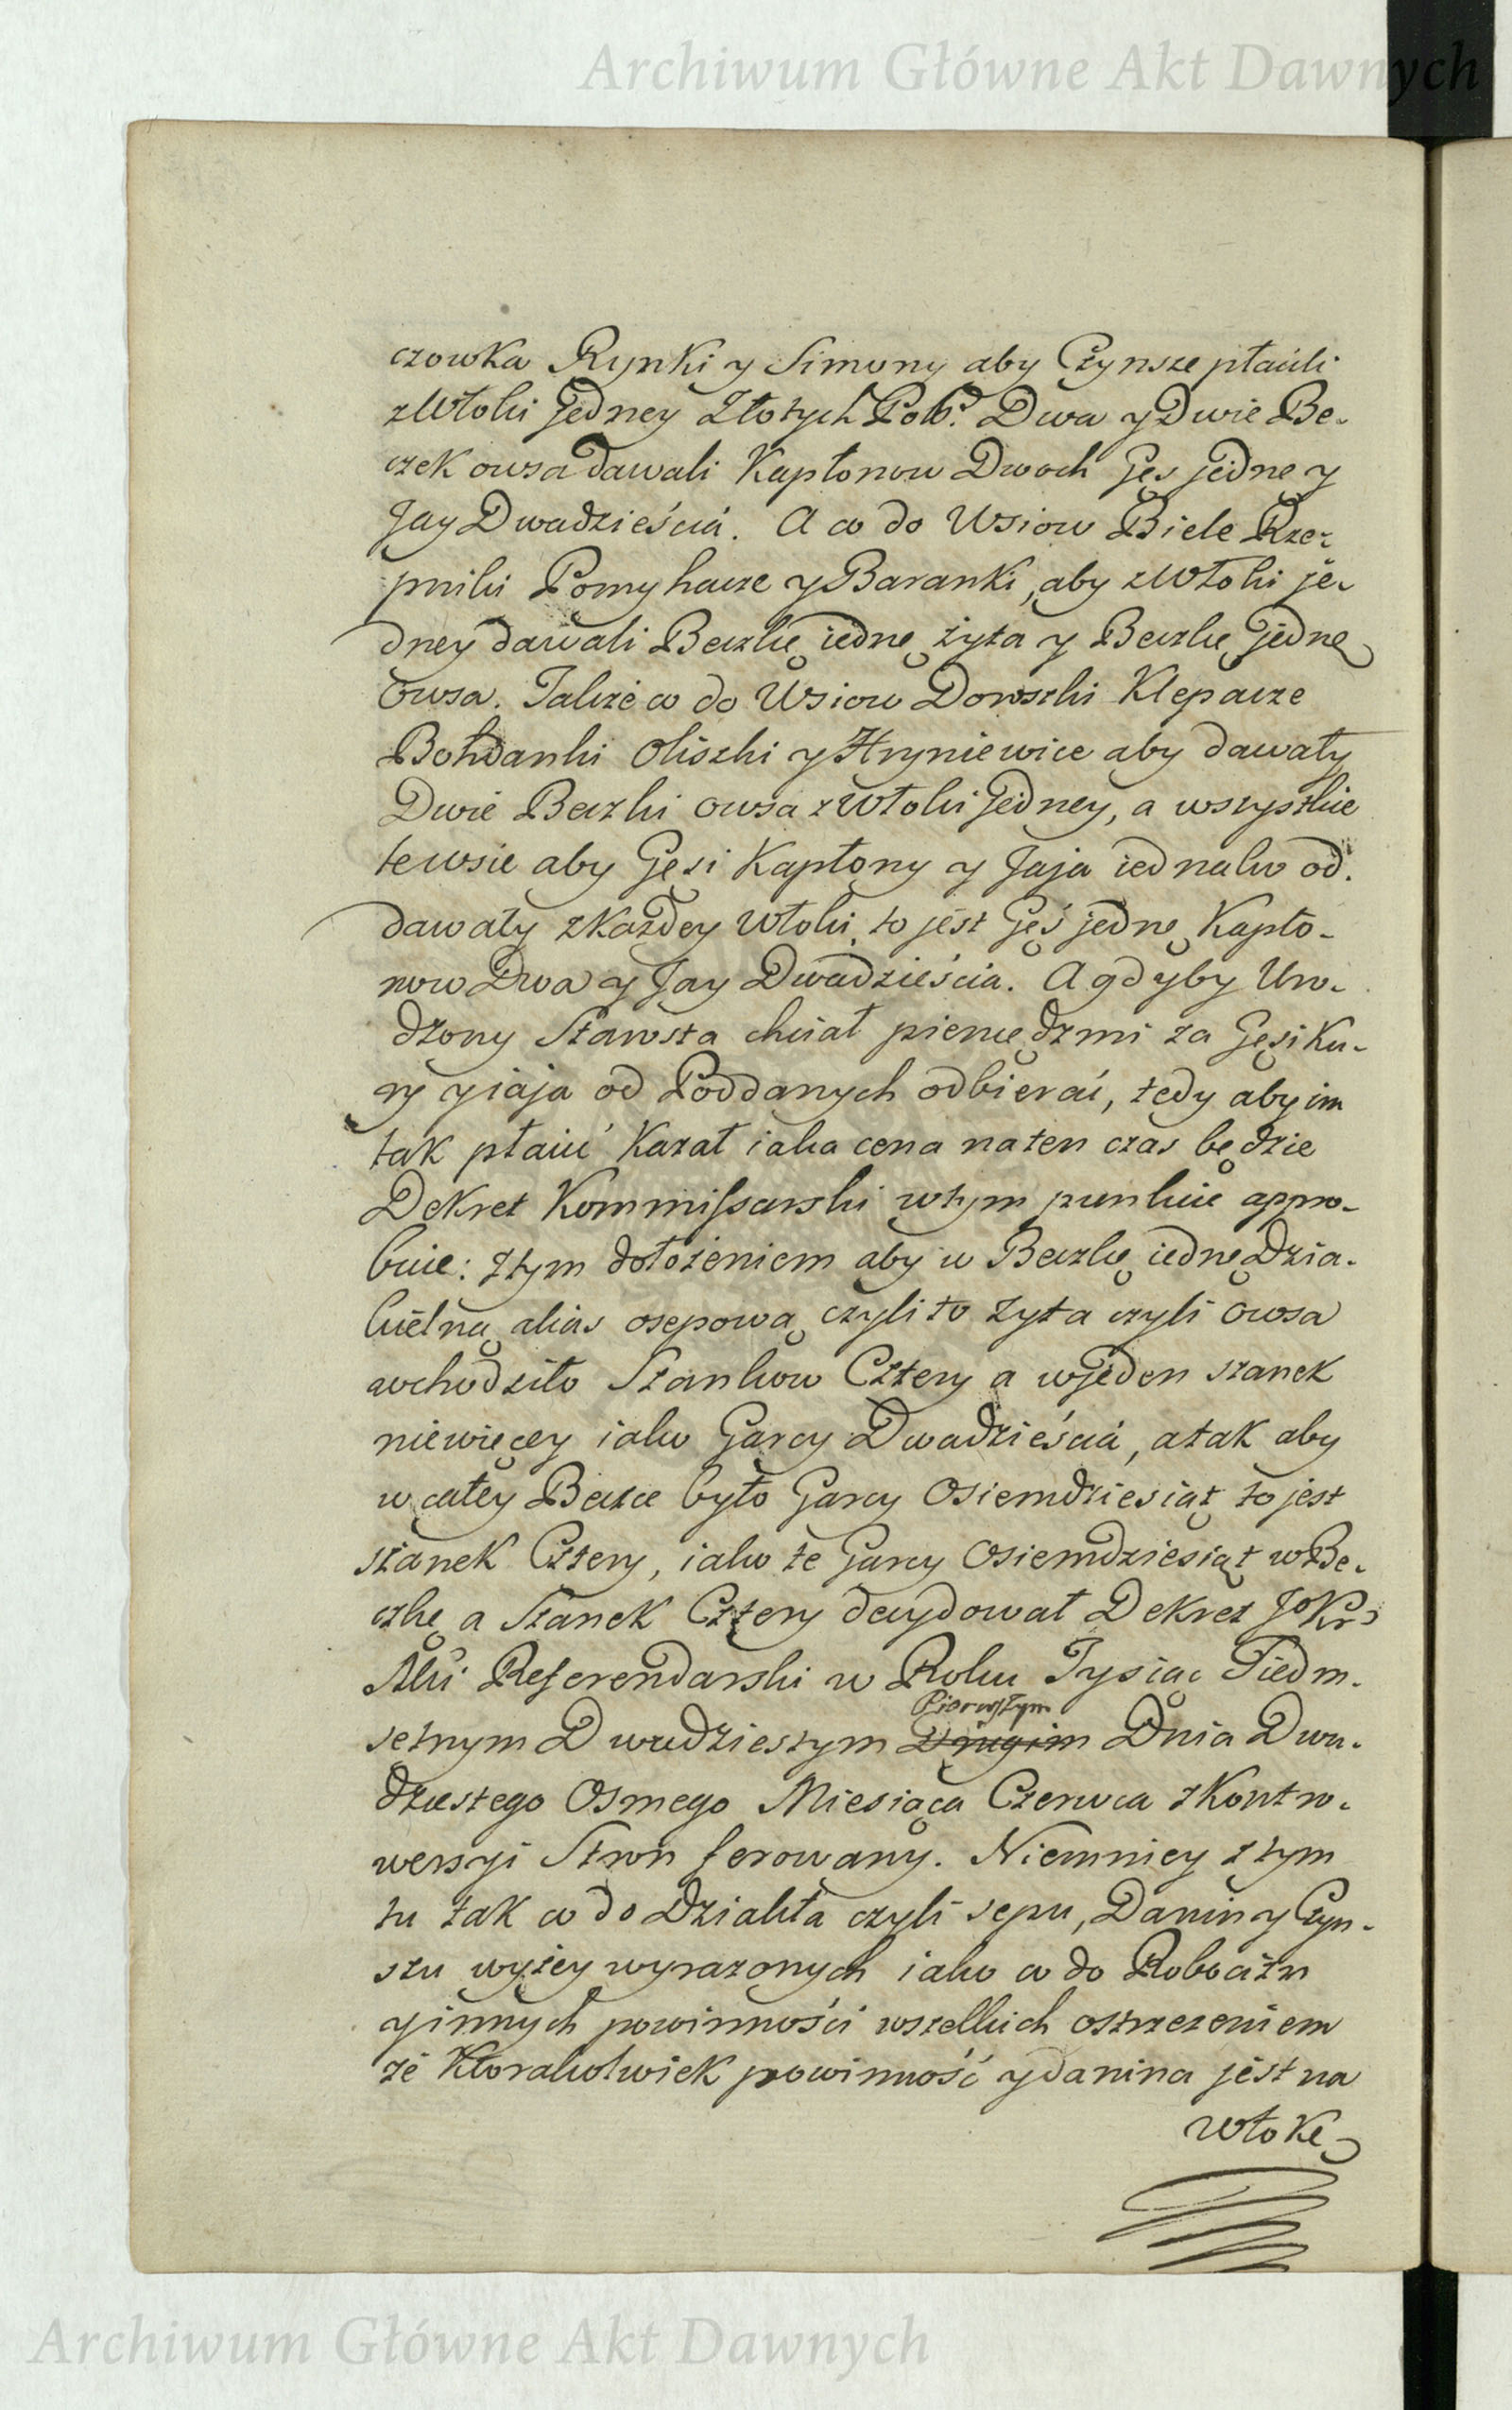 Archiwum Główne Akt Dawnych
czowka Rynki y Simuny aby Czynsze płacili
z Włoki Jedney Złotych Pol: Dwa y Dwie Be-
czek owsa dawali Kapłonow Dwoch Gęs jedne y
Jay Dwadzieścia. A co do Wsiow Biele Rze-
pniki Pomyhacze y Baranki, aby z Włoki je-
dney dawali Beczkę iednę żyta y Beczkę jednę
Owsa. Także co do Wsiow Doroszki Klepacze
Bohdanki Oliszki y Hryniewice aby dawały
Dwie Beczki owsa z Włoki Jedney, a wszystkie
te wsie aby Gęsi Kapłony y Jaja iednako od-
dawały z Każdey Włoki, to jest Gęś jednę Kapło-
now Dwa y Jay Dwadzieścia. A gdyby Uro-
dzony Starosta chciał pieniędzmi za Gęsi Ku-
ry y iaja od Poddanych odbierać, tedy aby im
tak płacić Kazał iaka cena na ten czas będzie
Dekret Kommissarski w tym punkcie appro-
buie: z tym dołożeniem aby w Beczkę iednę Dzia-
kielną alias osepową czyli to żyta czyli owsa
wchodziło Szankow Cztery a w Jeden szanek
niewięcey iako Garcy Dwadzieścia, a tak aby
w całey Beczce było Garcy Osiemdziesiąt to jest
szanek Cztery, iako te Garcy Osiemdziesiąt w Be-
czkę a Szanek Cztery decydował Dekret JoKr
Mci Referendarski w Roku Tysiąc Siedm-
setnym Dwudziestym Drugim Pierwszym Dnia Dwu-
dziestego Osmego Miesiąca Czerwca z Kontro-
wersyi Stron ferowany. Niemniey z tym
tu tak co do Dziakła czyli sepu, Danin y Czyn-
szu wyżey wyrażonych iako co do Robocizn
y innych powinności wszelkich ostrzeżeniem
że Ktorakolwiek powinność y danina jest na
Włokę
Archiwum Główne Akt Dawnych